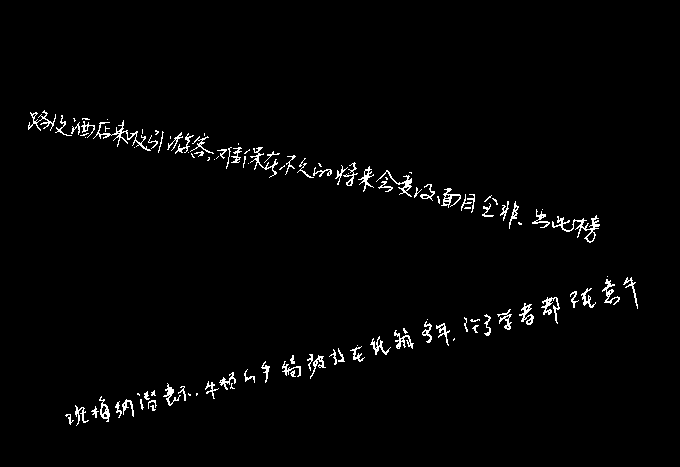 路及酒店来吸引游客,难保在不久的将来会变得面目全非。与此榜
班梅纳潜表示,牛顿的手稿被放在纸箱多年,许多学者都不在意牛